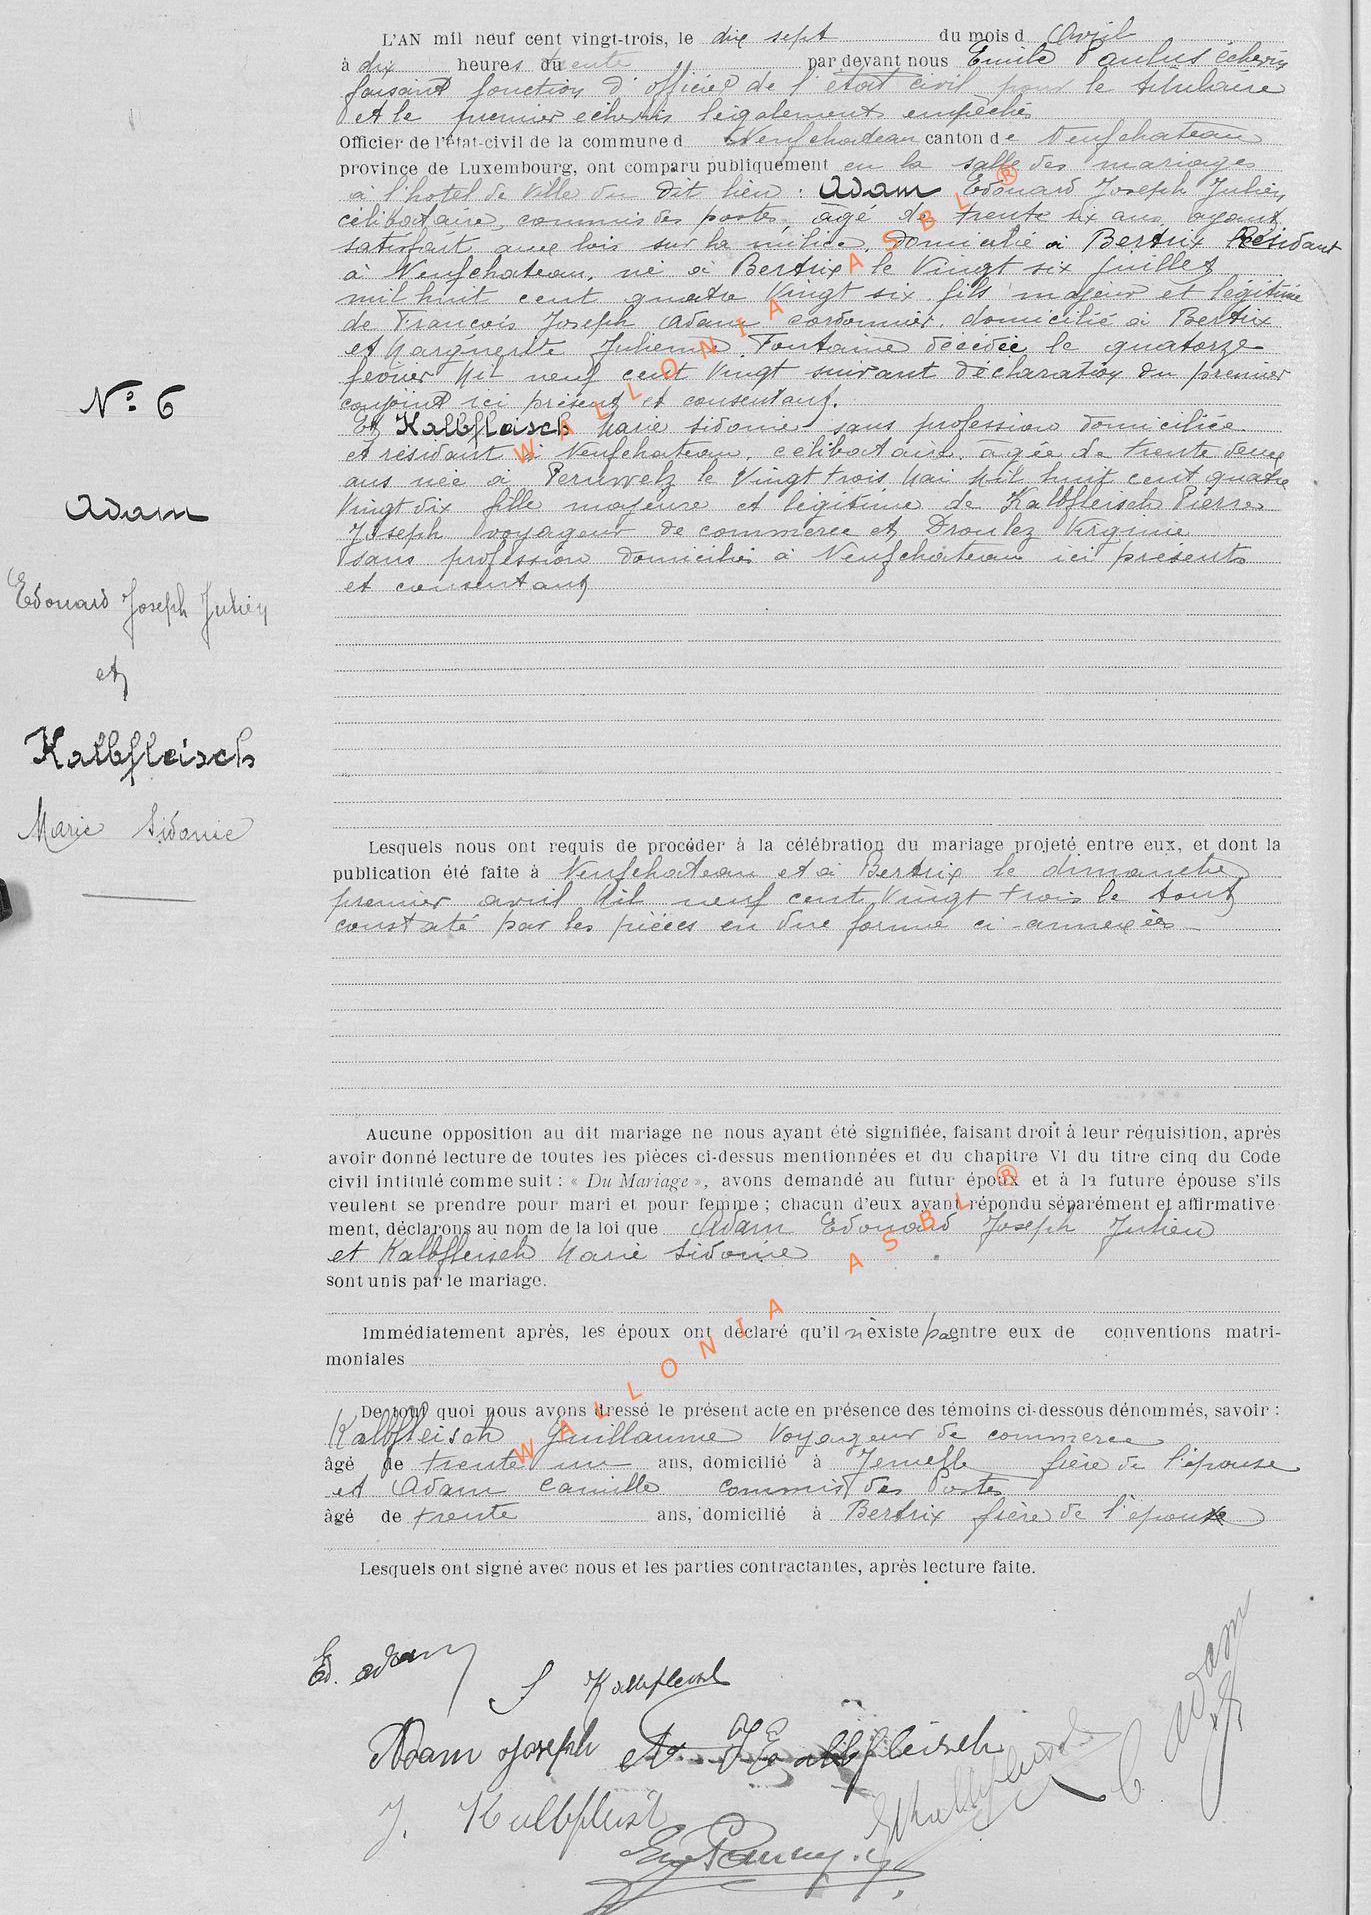 L'AN mil neuf cent vingt-trois, le dix sept du mois d Avril
à dix heures du trente par devant nous Emile Paulus échevin
faisant fonction d'officier de l'état civil pour le titulaire
et le premier échevin légalement empêchés
Officier de l'état-civil de la commune d Neufchateau canton de Neufchateau
province de Luxembourg, ont comparu publiquement en la salle des mariages
à l'hotel de ville du dit lieu : Adam Edouard Joseph Julien,
célibataire, commis des postes, âgé de trente six ans ayant
satisfait aux lois sur la milice, domicilié à Bertrix Résidant
à Neufchateau, né à Bertrix le vingt six juillet
mil huit cent quatre vingt six fils majeur et légitime
de François Joseph Adam cordonnier, domicilié à Bertrix
et Marguerite Julienne Fontaine décédée le quatorze
février Mil neuf cent vingt suivant déclaration du premier
conjoint ici présent et consentant.
Et Kalbfleisch Marie Sidonie sans profession domiciliée
et résidant à Neufchateau, célibataire, âgée de trente deux
ans née à Peruwelz le vingt trois Mai Mil huit cent quatre
vingt dix fille majeure et légitime de Kalbfleisch Pierre
Joseph voyageur de commerce et Droulez Virginie
sans profession domiciliés à Neufchâteau ici présents
et consentant
N° 6
Adam
Edouard Joseph Julien
et
Kalbfleisch
Marie Sidonie
Lesquels nous ont requis de procéder à la célébration du mariage projeté entre eux, et dont la
publication été faite à Neufchateau et à Bertrix le dimanche
premier avril Mil neuf cent vingt trois le tout
constaté par les pièces en due forme ci-annexées
Aucune opposition au dit mariage ne nous ayant été signifiée, faisant droit à leur réquisition, après
avoir donné lecture de toutes les pièces ci-dessus mentionnées et du chapitre VI du titre cinq du Code
civil intitulé comme suit : « Du Mariage », avons demandé au futur époux et à la future épouse s'ils
veulent se prendre pour mari et pour femme ; chacun d'eux ayant répondu séparément et affirmative-
ment, déclarons au nom de la loi que Adam Edouard Joseph Julien
et Kalbfleisch Marie Sidonie
sont unis par le mariage.
Immédiatement après, les époux ont déclaré qu'il n'existe pas entre eux de conventions matri-
moniales
De tout quoi nous avons dressé le présent acte en présence des témoins ci-dessous dénommés, savoir :
Kalbfleisch Guillaume voyageur de commerce
âgé de trente un ans, domicilié à Jemelle frère de l'épouse
et Adam Camille commis des Postes
âgé de trente ans, domicilié à Bertrix frère de l'époux
Lesquels ont signé avec nous et les parties contractantes, après lecture faite.
Ed. Adam
S Kalbfleisch
Adam Joseph
Kalbfleisch
J. Kalbfleisch
C. Adam
WALLONIA ASBL ®
WALLONIA ASBL ®